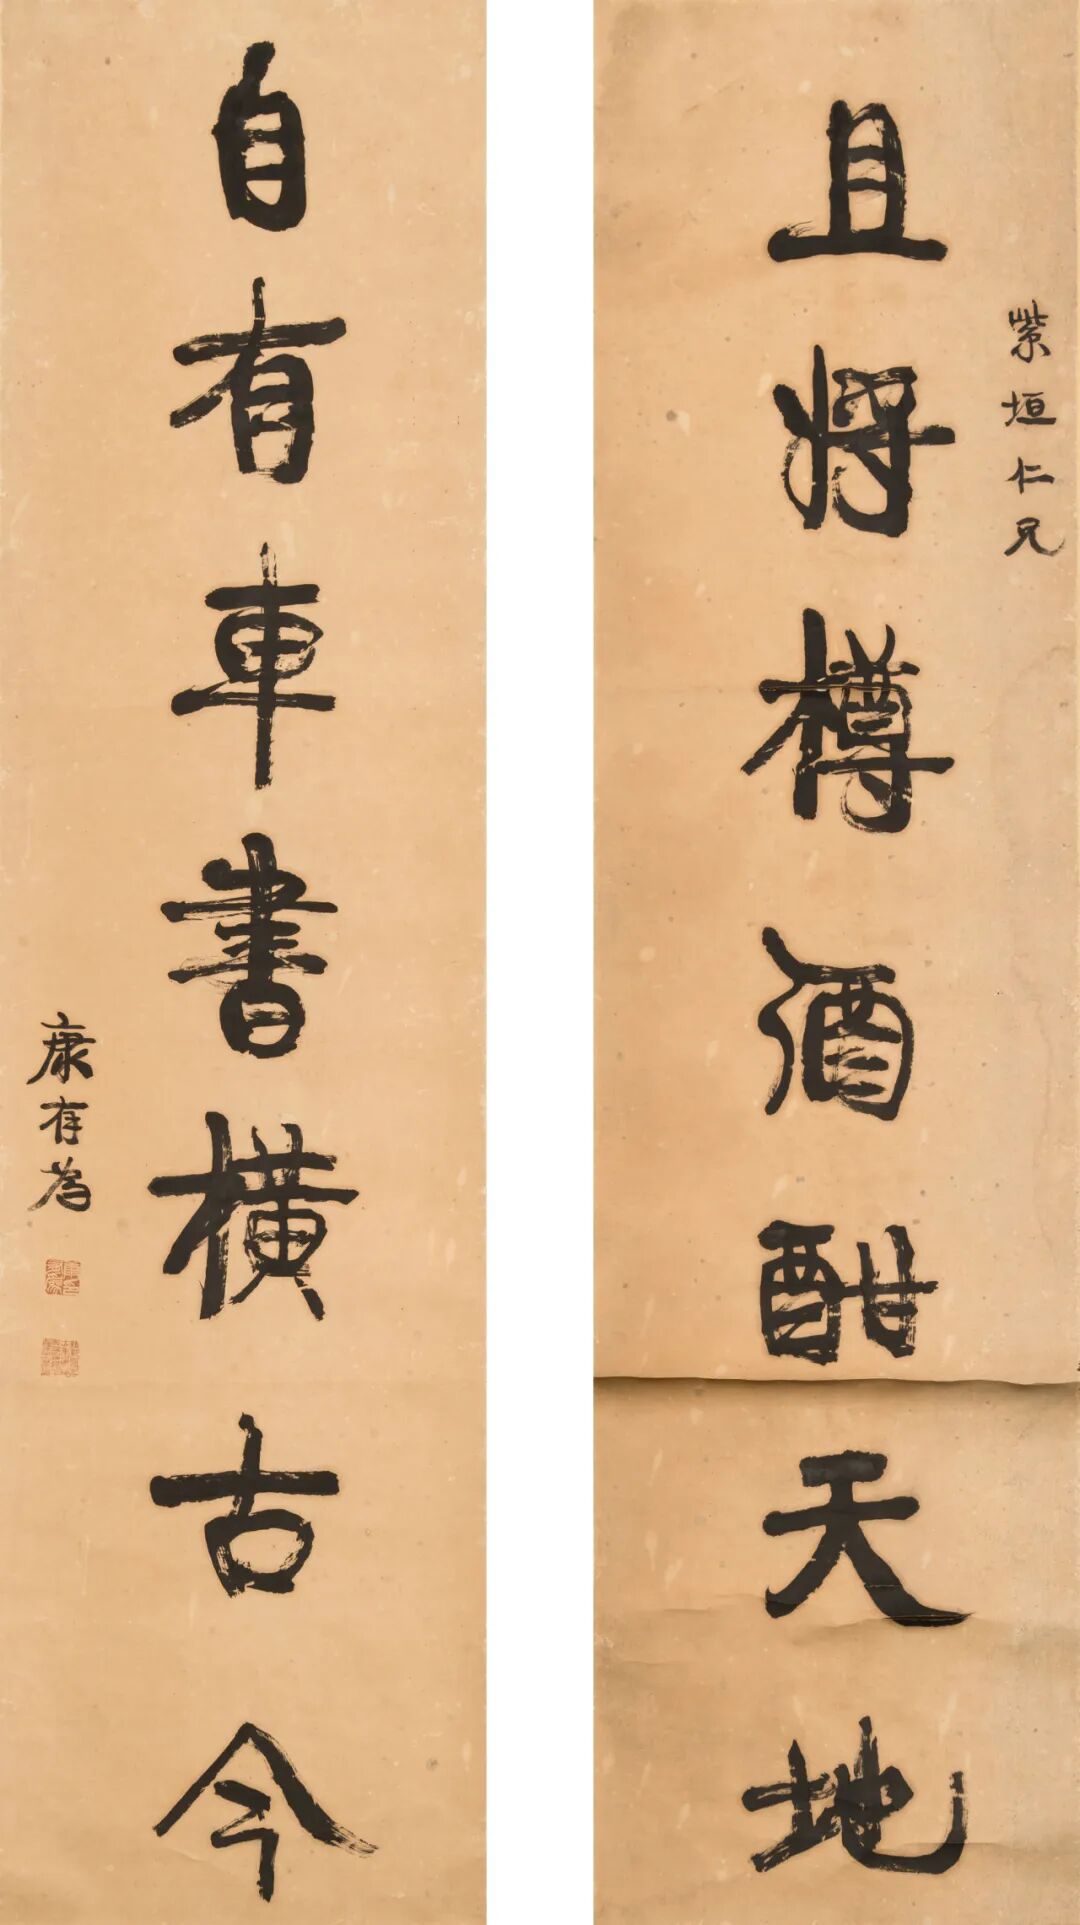 紫垣仁兄
且將樽酒酣天地
自有車書橫古今
康有為